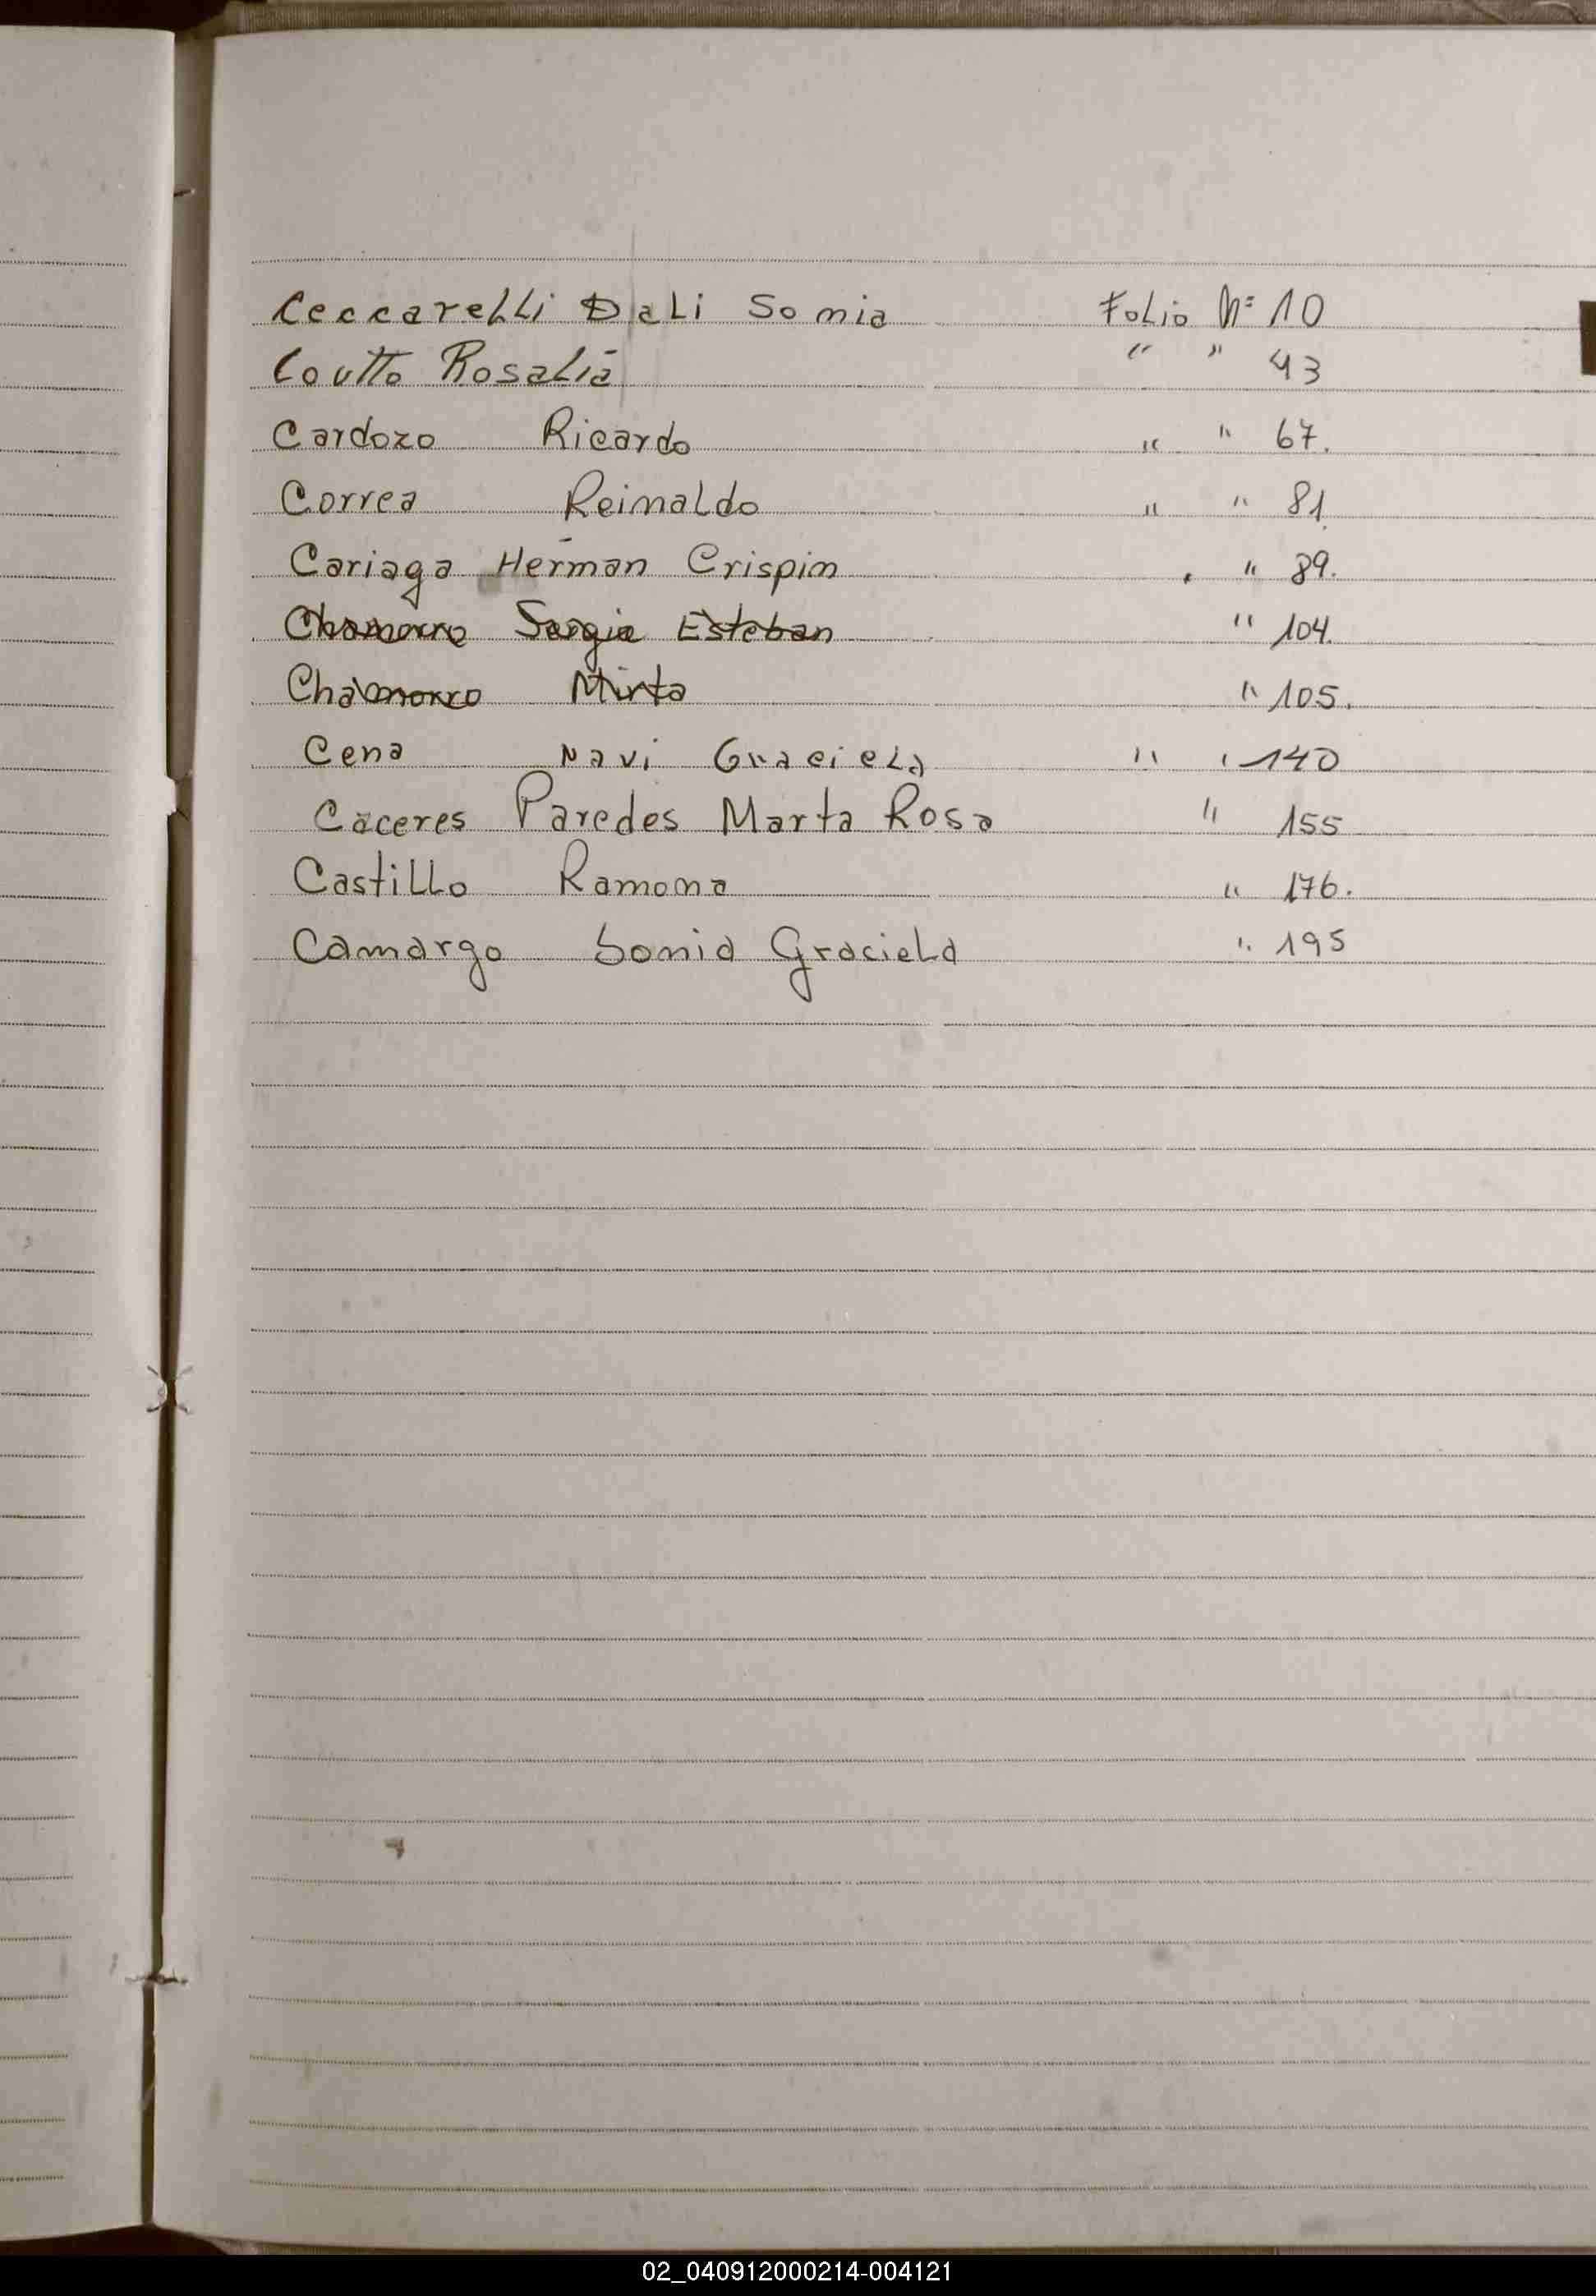 Ceccarelli Dali Sonia Folio Nº 10
Coutto Rosalia " " 43
Cardozo Ricardo " " 67.
Correa Reinaldo " " 81.
Cariaga Herman Crispin " " 89.
Chamorro Sergio Esteban " 104.
Chamorro Mirta " 105.
Cena Navi Graciela " " 140
Caceres Paredes Marta Rosa " 155
Castillo Ramona " 176.
Camargo Sonia Graciela " 195
02_040912000214-004121